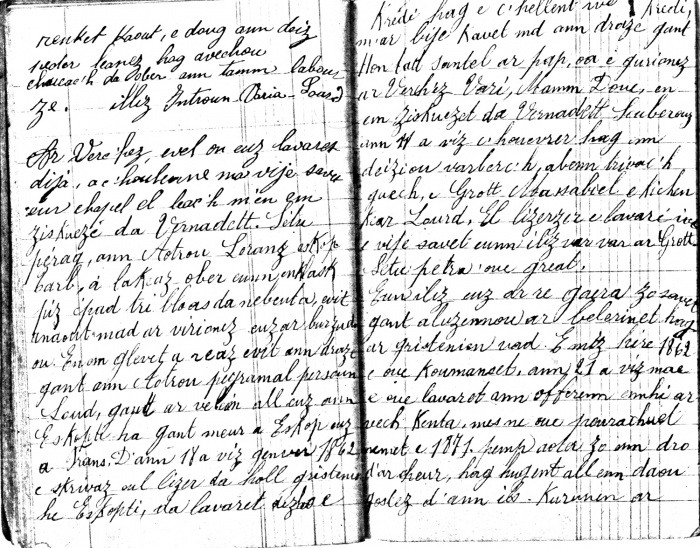 renket Kaout, e doug ann deiz
hag avechou
da Ober ann tamm labour
ze. iliz Introun Varia Lourd

Ar Verc'hez, evel ou euz lavaret
dija, a c'houlenne ma vije savet
eur chapel el leac'h m'en em
ziskueze da Vernadett. Setu
perag, ann Aotrou Loranz eskop
Tarb, a lakaz ober eunn enklask
piz epad tri bloas da nebeuta, evit
anaout mad ar virionez euz ar burzudou
ou. En em glevet a reaz evit ann draze
gant ann Aotrou Peyramal person
Lourd, gant ar veleien all euz ann
Eskopti ha gant meur a Eskop euz
a Frans. D'ann 18 a viz genver 1862
e skrivaz eul lizer da holl gristenien
he Eskopti, da lavaret dezho e

Kredi hag e c'hellent ive Kredi,
evit ann draze gant
Hon tad santel ar pap, oa e guirionez
ar Verchez Vari, Mamm Doue, en
em ziskuezet da Vernadett Souberous
ann 11 a viz c'houevrer hag enn
deiziou varlerc'h, abenn trivac'h
guech, e Grott Massabiel e kichen
kear Lourd. El lizer ze e lavare ive
e vije savet eunn iliz var ar Grott
Setu petra oue great.
Eun iliz euz ar re gaera zo savet
gant aluzennou ar belerinet hag
ar gristenien vad. E miz here 1862
e oue Koumanset, ann 21 a viz mae
e oue lavaret ann offerenn enhi ar
vech Kenta, mes ne oue peurachuet
nemet e 1871. pemp aoter zo enn dro
d'ar cheur, hag nugent all enn daou
gostez d'ann ilis. Kurunen ar